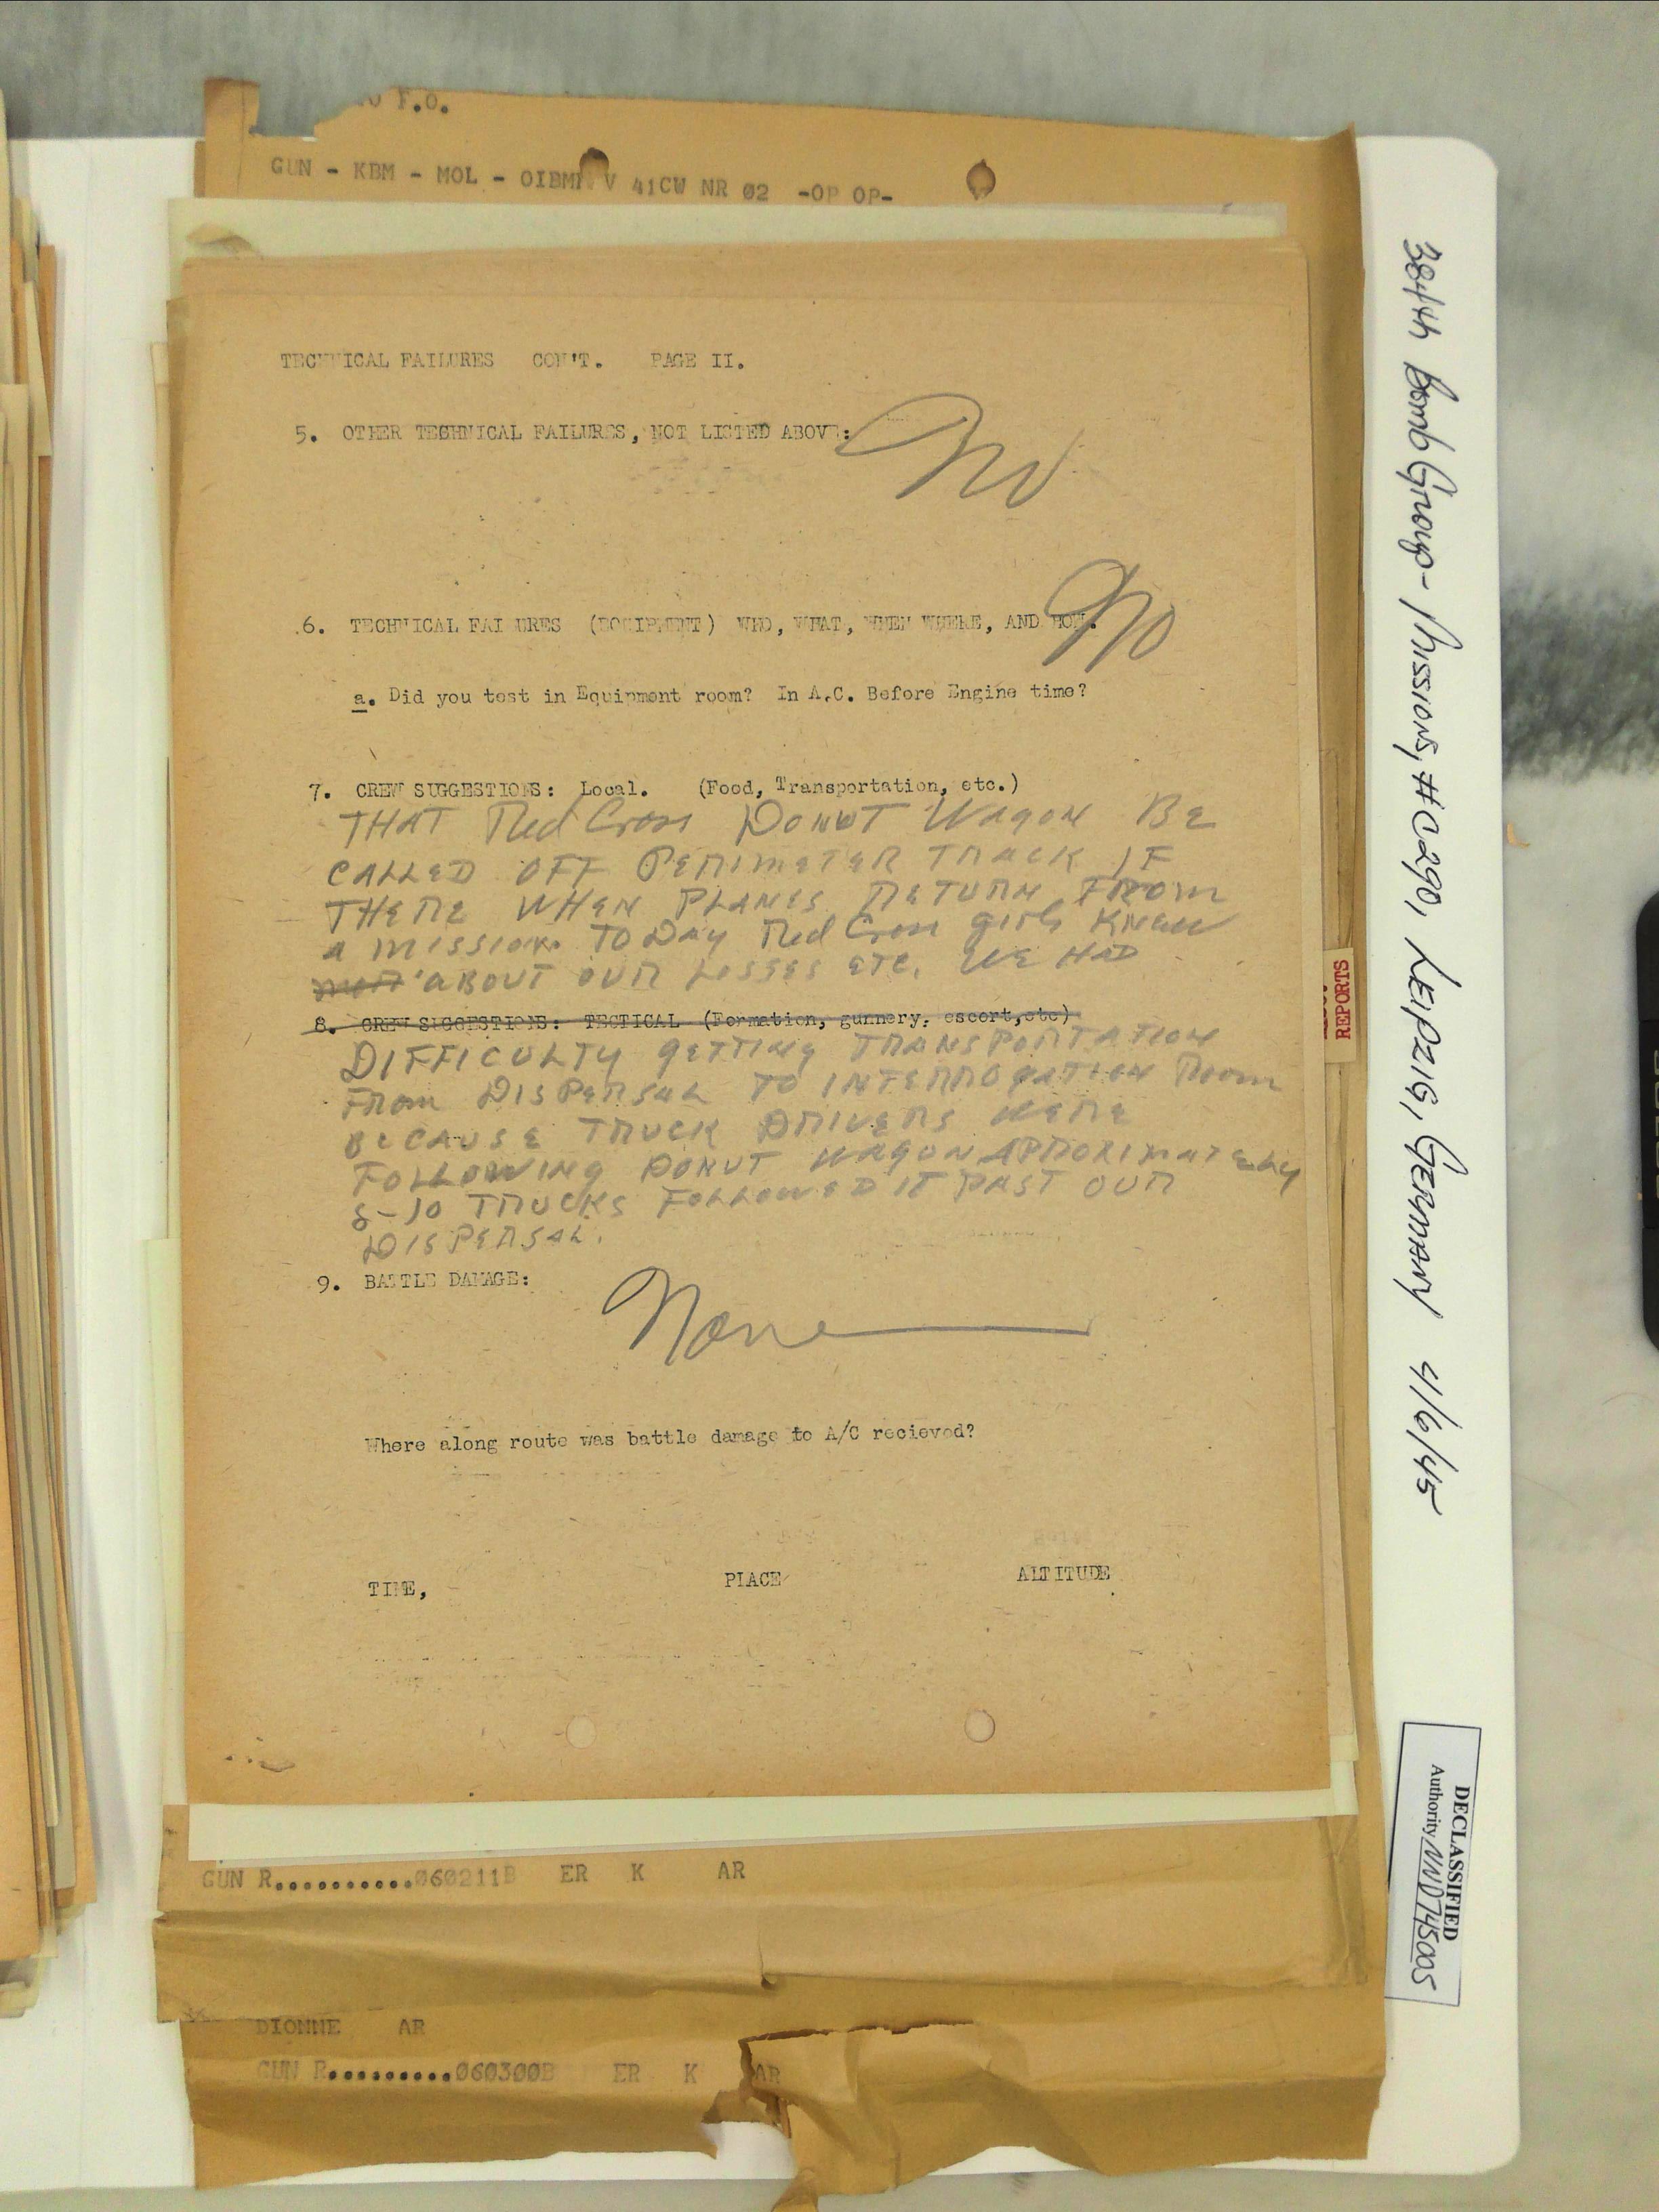 F.O.
GUN - KBM - MOL - OIBMR V 41CW NR 02 -OP OP-
TECHNICAL FAILURES CON'T. PAGE II.
5. OTHER TECHNICAL FAILURES, NOT LISTED ABOVE:
No
6. TECHNICAL FAILURES (EQUIPMENT) WHO, WHAT, WHEN WHERE, AND HOW.
No
a. Did you test in Equipment room? In A.C. Before Engine time?
7. CREW SUGGESTIONS: Local. (Food, Transportation, etc.)
THAT Red Cross DONUT WAGON BE
CALLED OFF PERIMETER TRACK IF
THERE WHEN PLANES RETURN FROM
A MISSION. TODAY Red Cross girls KNEW
ABOUT OUR LOSSES ETC. WE HAD
8. CREW SUGGESTIONS: TECTICAL (Formation, gunnery, escort,etc)
DIFFICULTY GETTING TRANSPORTATION
FROM DISPERSAL TO INTERROGATION Room
BECAUSE TRUCK DRIVERS WERE
FOLLOWING DONUT WAGON APPROXIMATELY
8-10 TRUCKS FOLLOWED IT PAST OUR
DISPERSAL.
9. BATTLE DAMAGE:
None
Where along route was battle damage to A/C recieved?
TIME, PLACE ALTITUDE
GUN R..........060211B ER K AR
DIONNE AR
GUN R..........060300B ER K AR
REPORTS
384th Bomb Group - Missions, #C290, LEIPZIG, GERMANY 4/6/45
DECLASSIFIED
Authority NND745005